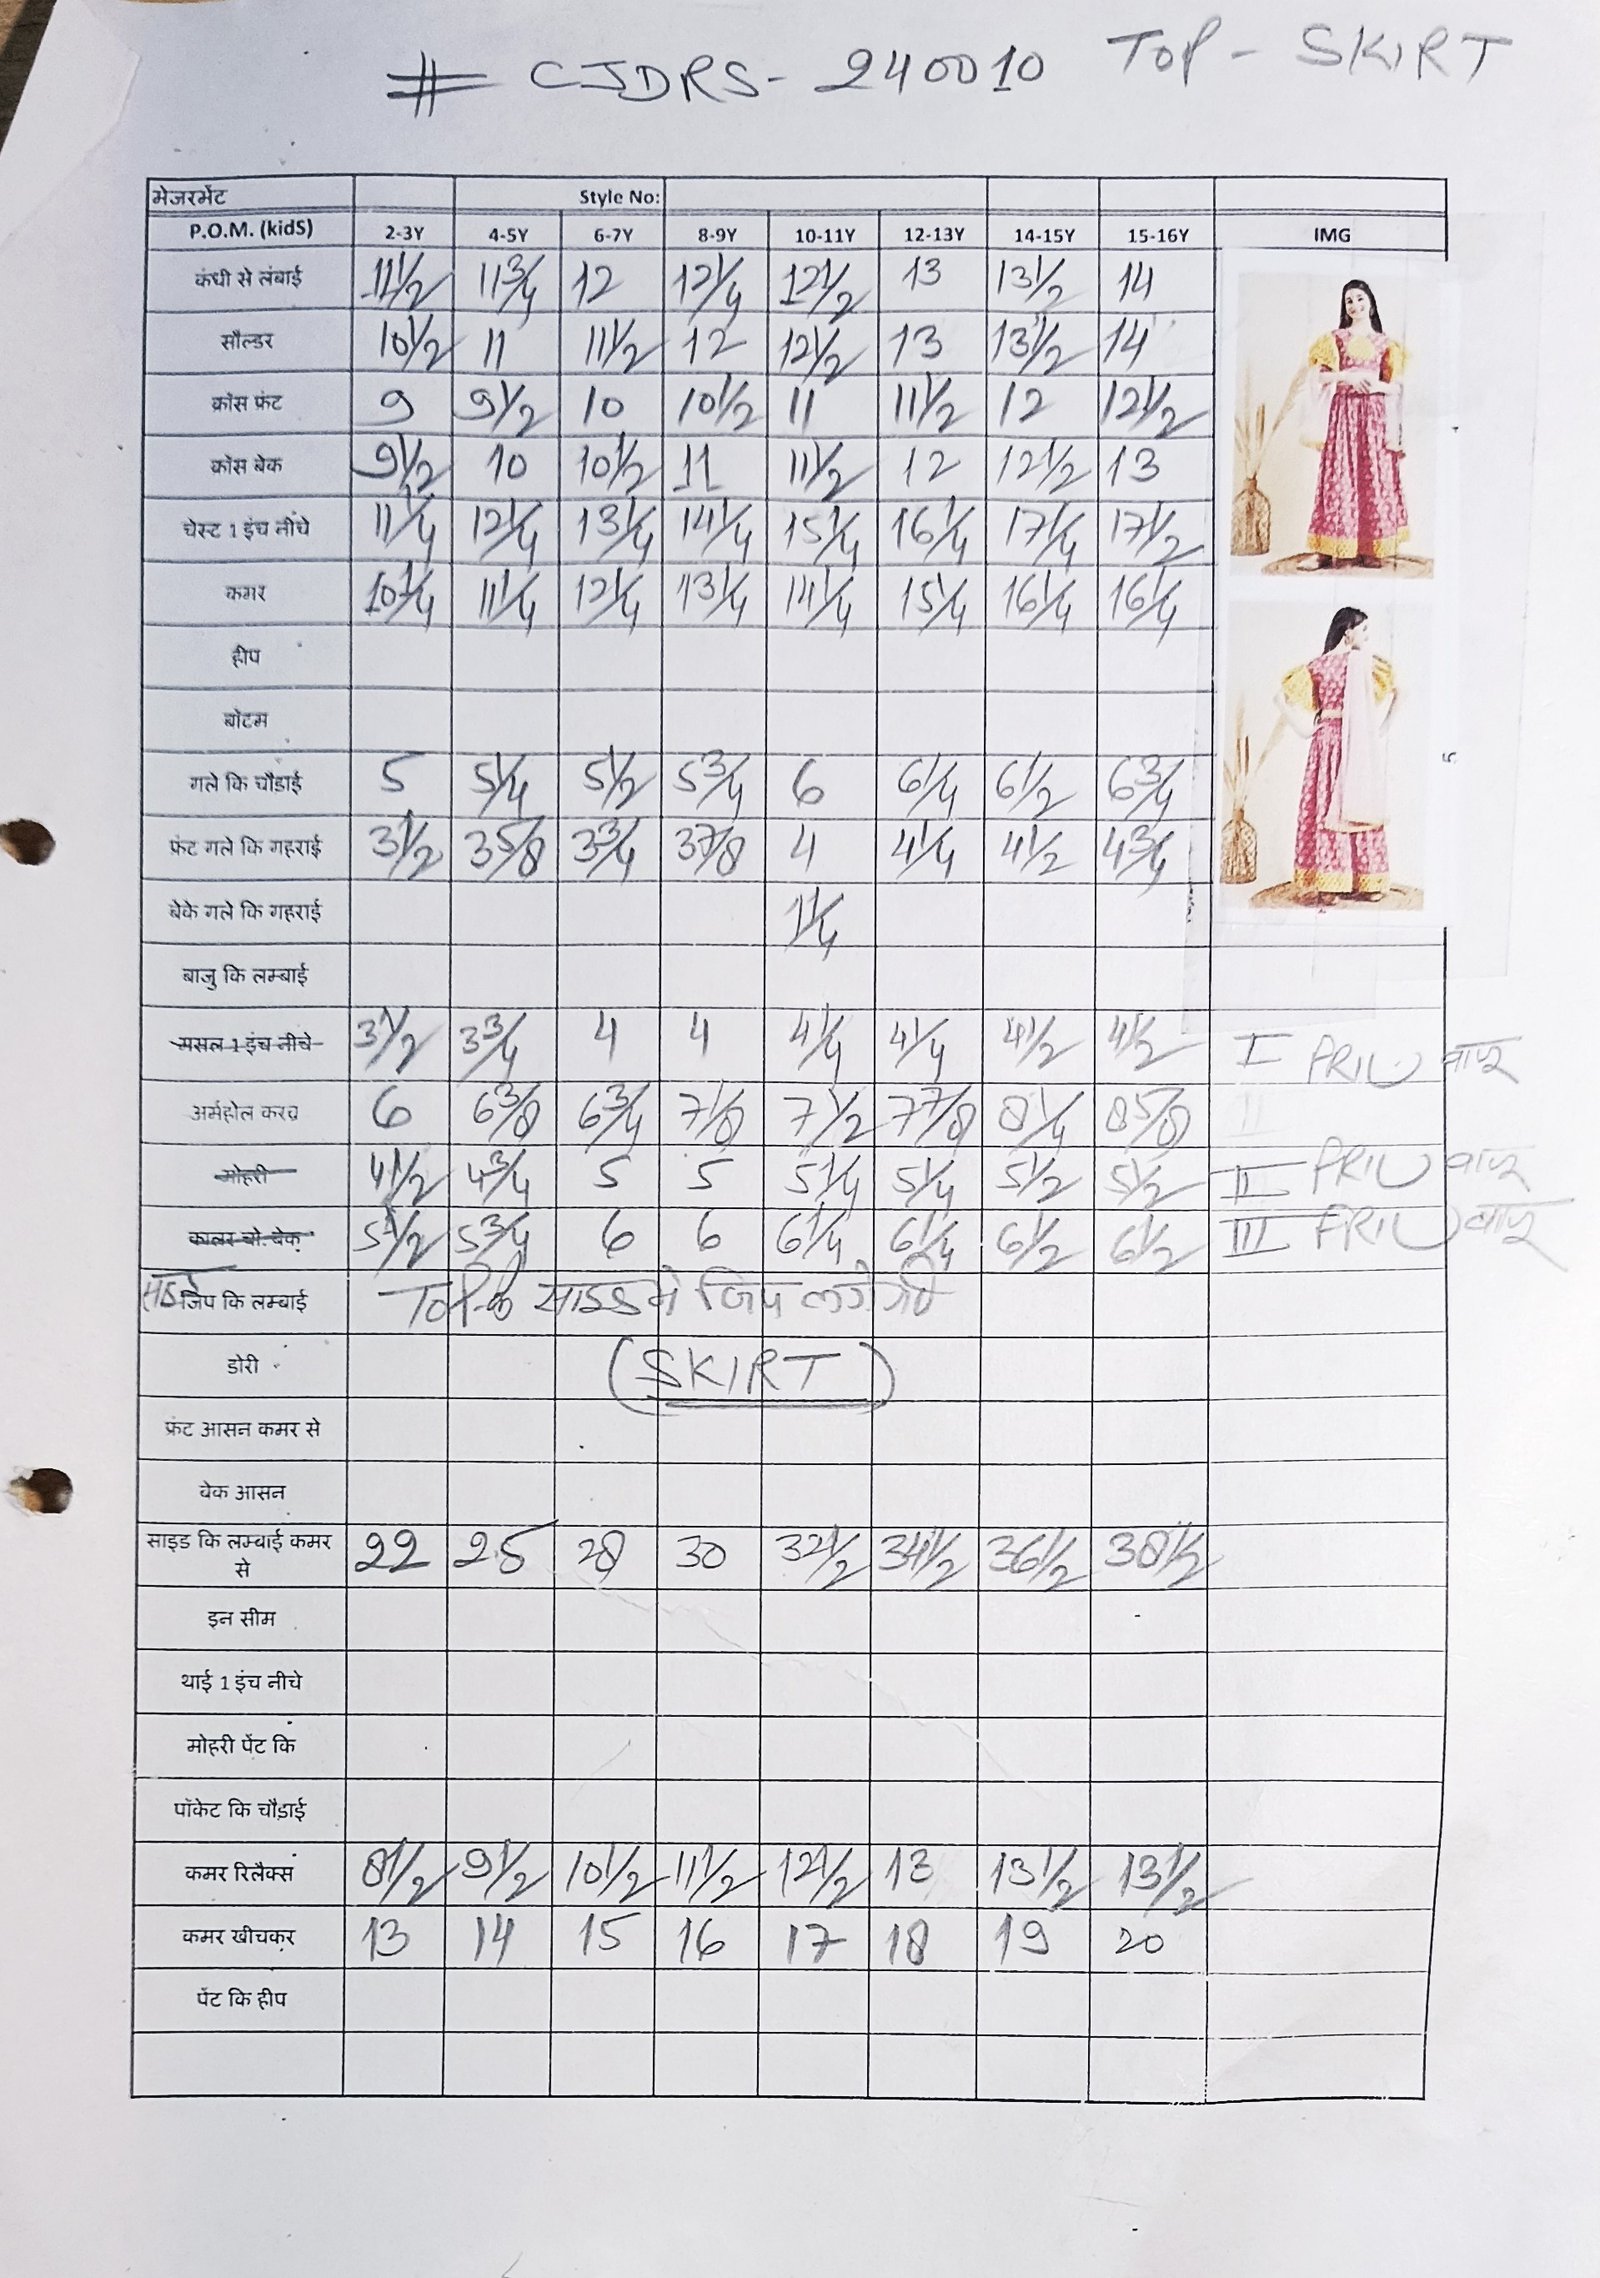 # CJDRS-240010 TOP - SKIRT
मेजरमेंट Style No:
P.O.M. (kidS) 2-3Y 4-5Y 6-7Y 8-9Y 10-11Y 12-13Y 14-15Y 15-16Y IMG
कंधी से लंबाई 11 1/2 11 3/4 12 12 1/4 12 1/2 13 13 1/2 14
सौल्डर 10 1/2 11 11 1/2 12 12 1/2 13 13 1/2 14
क्रॉस फ्रंट 9 9 1/2 10 10 1/2 11 11 1/2 12 12 1/2
क्रॉस बेक 9 1/2 10 10 1/2 11 11 1/2 12 12 1/2 13
चेस्ट 1 इंच नीचे 11 1/4 12 1/4 13 1/4 14 1/4 15 1/4 16 1/4 17 1/4 17 1/2
कमर 10 1/4 11 1/4 12 1/4 13 1/4 14 1/4 15 1/4 16 1/4 16 1/4
हीप
बॉटम
गले कि चौडाई 5 5 1/4 5 1/2 5 3/4 6 6 1/4 6 1/2 6 3/4
फ्रंट गले कि गहराई 3 1/2 3 5/8 3 3/4 3 7/8 4 4 1/4 4 1/2 4 3/4
बेके गले कि गहराई 1 1/4
बाजु कि लम्बाई
मसल 1 इंच नीचे 3 1/2 3 3/4 4 4 4 1/4 4 1/4 4 1/2 4 1/2 I
अर्महोल करव 6 6 3/8 6 3/4 7 1/8 7 1/2 7 7/8 8 1/4 8 5/8
मोहरी 4 1/2 4 3/4 5 5 5 1/4 5 1/4 5 1/2 5 1/2 II
कालर चो. बेक 5 1/2 5 3/4 6 6 6 1/4 6 1/4 6 1/2 6 1/2 III
साईड जिप कि लम्बाई TOP के साइड मे जिप लगेगी
डोरी (SKIRT)
फ्रंट आसन कमर से
बेक आसन
साइड कि लम्बाई कमर से 22 25 28 30 32 1/2 34 1/2 36 1/2 38 1/2
इन सीम
थाई 1 इंच नीचे
मोहरी पेंट कि
पॉकेट कि चौड़ाई
कमर रिलैक्स 8 1/2 9 1/2 10 1/2 11 1/2 12 1/2 13 13 1/2 13 1/2
कमर खीचकर 13 14 15 16 17 18 19 20
पेंट कि हीप